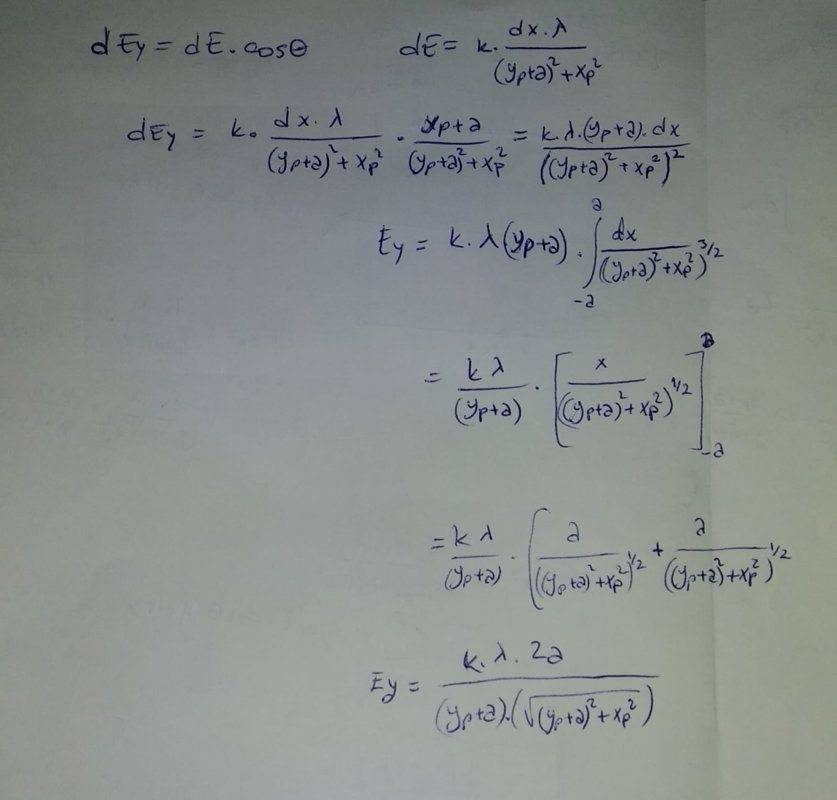 dEy = dE · cosθ    dE = k · dx · λ / ((yp+a)² + xp²)
dEy = k · dx · λ / ((yp+a)² + xp²) · (yp+a) / ((yp+a)² + xp²) = k · λ · (yp+a) · dx / ((yp+a)² + xp²)²
Ey = k · λ (yp+a) · ∫₋ₐᵃ dx / ((yp+a)² + xp²)^3/2
= kλ / (yp+a) · [x / ((yp+a)² + xp²)^1/2]₋ₐᵃ
= kλ / (yp+a) · [a / ((yp+a)² + xp²)^1/2 + a / ((yp+a)² + xp²)^1/2
Ey = k · λ · 2a / ((yp+a) · (√((yp+a)² + xp²)))